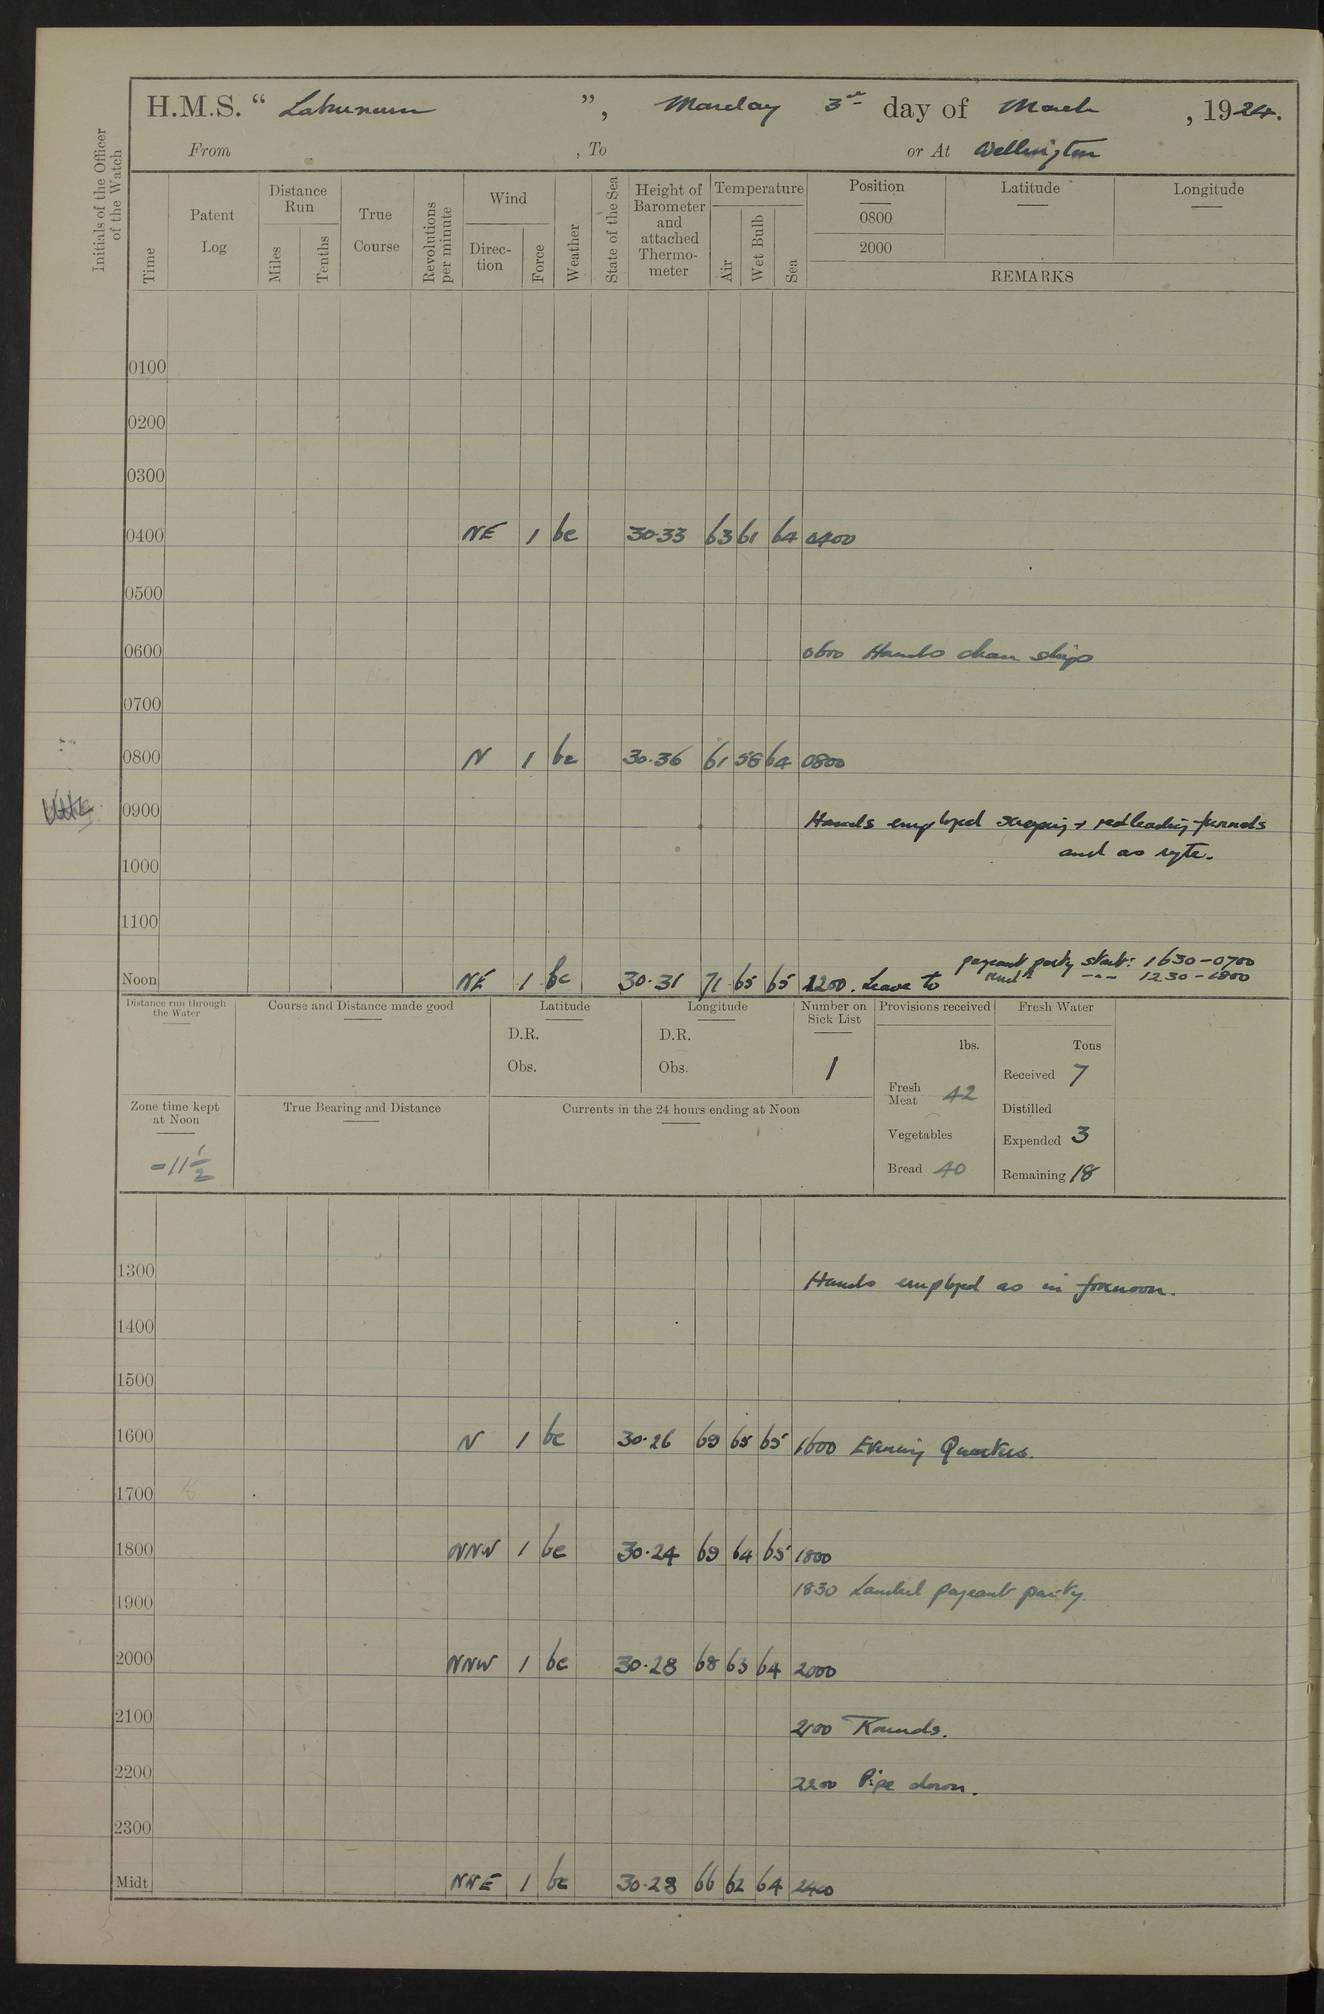 H.M.S. “ Laburnum ”, Monday 3rd day of March , 1924.
From , To or At Wellington
Initials of the Officer of the Watch
Time
Patent Log
Distance Run
Miles
Tenths
True Course
Revolutions per minute
Wind
Direc-tion
Force
Weather
State of the Sea
Height of Barometer and attached Thermo-meter
Temperature
Air
Wet Bulb
Sea
Position Latitude Longitude
0800
2000
REMARKS
0100
0200
0300
0400 NE 1 bc 30.33 63 61 64 0400
0500
0600 0600 Hands clean ship
0700
0800 N 1 bc 30.36 61 58 64 0800
0900 Hands employed scraping + redleading funnels
and as reqte.
1000
1100
pageant party starb: 1630-0700
Noon NE 1 bc 30.31 71 65 65 1200. Leave to remdr -"- 1230-1800
Distance run through the Water
Course and Distance made good
Latitude
D.R.
Obs.
Longitude
D.R.
Obs.
Number on Sick List
1
Provisions received
lbs.
Fresh Meat 42
Vegetables
Bread 40
Fresh Water
Tons
Received 7
Distilled
Expended 3
Remaining 18
Zone time kept at Noon
-11½
True Bearing and Distance
Currents in the 24 hours ending at Noon
1300 Hands employed as in forenoon.
1400
1500
1600 N 1 bc 30.26 69 65 65 1600 Evening Quarters.
1700
1800 NNW 1 bc 30.24 69 64 65 1800
1830 Landed pageant party.
1900
2000 NNW 1 bc 30.28 68 63 64 2000
2100 2100 Rounds.
2200 2200 Pipe down.
2300
Midt NNE 1 bc 30.28 66 62 64 2400